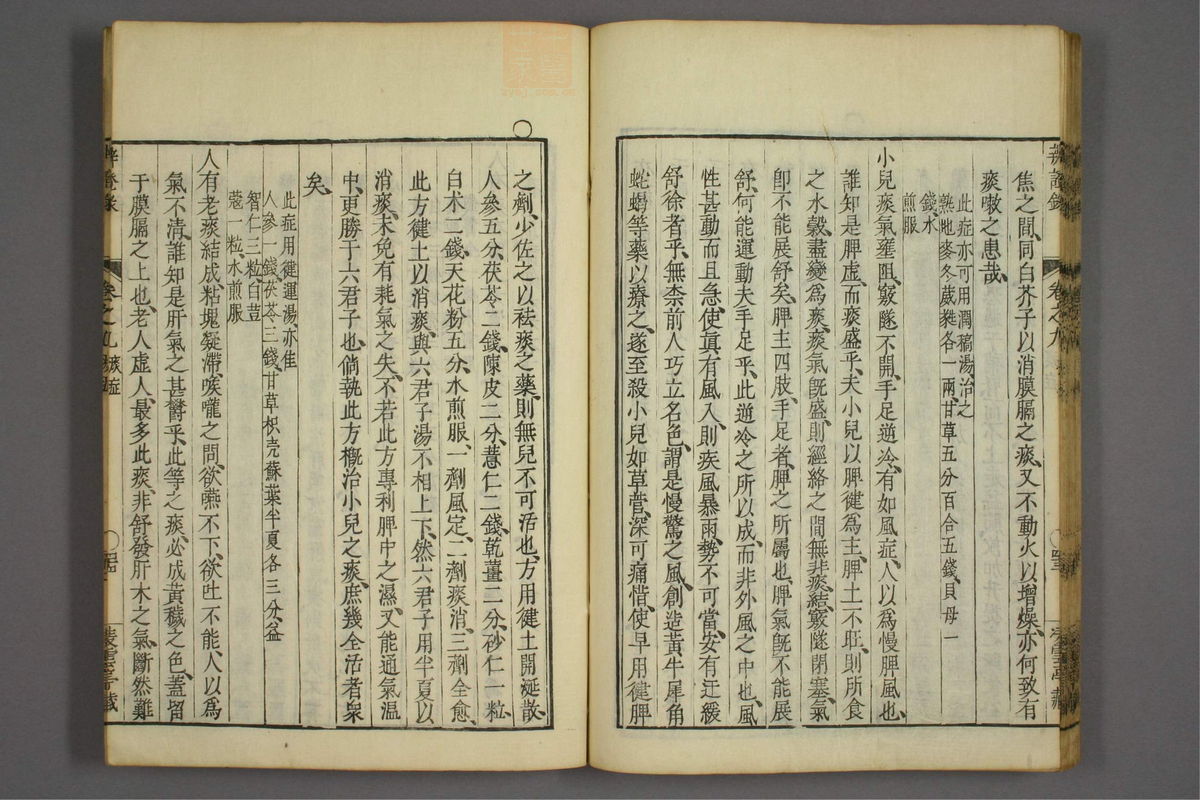 焦之間同白芥子以消膜膈之痰又不動火以增燥亦何致有
痰嗽之患哉
此症亦可用潤稿湯治之
熟地麥冬葳蕤各一兩甘草五分百合五錢貝母一
錢水
煎服
小兒痰氣壅阻竅隧不開手足逆冷有如風症人以爲慢脾風也
誰知是脾虛而痰盛乎夫小兒以脾健爲主脾土不旺則所食
之水穀盡變爲痰痰氣旣盛則經絡之間無非痰結竅隧閉塞氣
卽不能展舒矣脾主四肢手足者脾之所屬也脾氣旣不能展
舒何能運動夫手足乎此逆冷之所以成而非外風之中也風
性甚動而且急使眞有風入則疾風暴雨勢不可當安有迂緩
舒徐者乎無柰前人巧立名色謂是慢驚之風創造黃牛犀角
蛇蝎等藥以療之遂至殺小兒如草菅深可痛惜使早用健脾
辨證錄
卷之九
之劑少佐之以祛痰之藥則無兒不可活也方用健土開涎散
人參五分茯苓二錢陳皮二分薏仁二錢乾薑二分砂仁一粒
白朮二錢天花粉五分水煎服一劑風定二劑痰消三劑全愈
此方健土以消痰與六君子湯不相上下然六君子用半夏以
消痰未免有耗氣之失不若此方專利脾中之濕又能通氣溫
中更勝于六君子也倘執此方槪治小兒之痰庶幾全活者衆
矣
此症用健運湯亦佳
人參一錢茯苓三錢甘草枳壳蘇葉半夏各三分益
智仁三粒白荳
蔻一粒水煎服
人有老痰結成粘塊凝滯喉嚨之間欲嚥不下欲吐不能人以爲
氣不清誰知是肝氣之甚鬱乎此等之痰必成黃穢之色蓋留
于膜膈之上也老人虛人最多此痰非舒發肝木之氣斷然難
卷之九
痰症